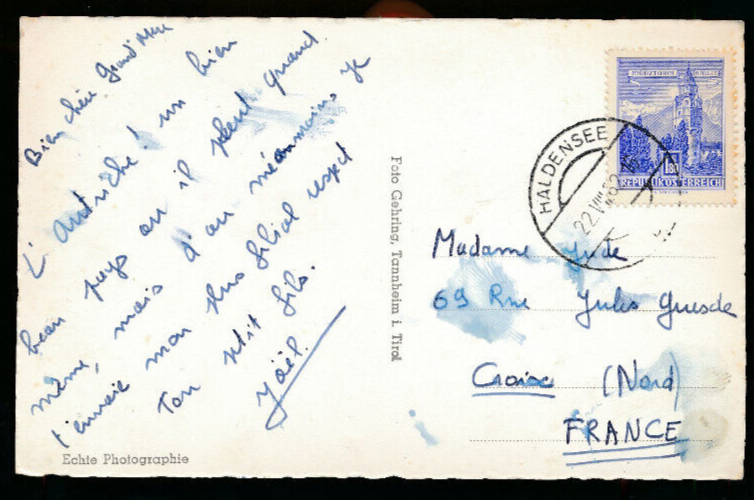 Bien chère Grand'Mère
L'Autriche ! un bien
beau pays où il pleut quand
même, mais d'où néanmoins je
t'envoie mon plus filial respect
Ton petit fils.
Joël.
Echte Photographie
Foto Gehring, Tannheim i. Tirol
REPUBLIK ÖSTERREICH
HALDENSEE
22.VII.62
Madame
69 Rue Jules Guesde
Croix (Nord)
FRANCE